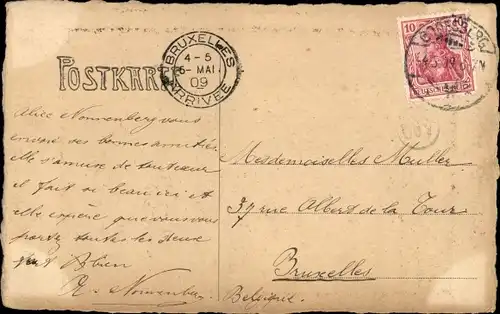 POSTKARTE
BRUXELLES
4-5
6-MAI
09
ARRIVEE
10
Alice Nonnenberg vous
envoie ses bonnes amitiés
elle s'amuse de tout cœur
il fait si beau ici et
elle espère que vous vous
portez toutes les deux
bien
E. Nonnenberg
Mesdemoiselles Muller
37 rue Albert de la Tour
Bruxelles
Belgique.